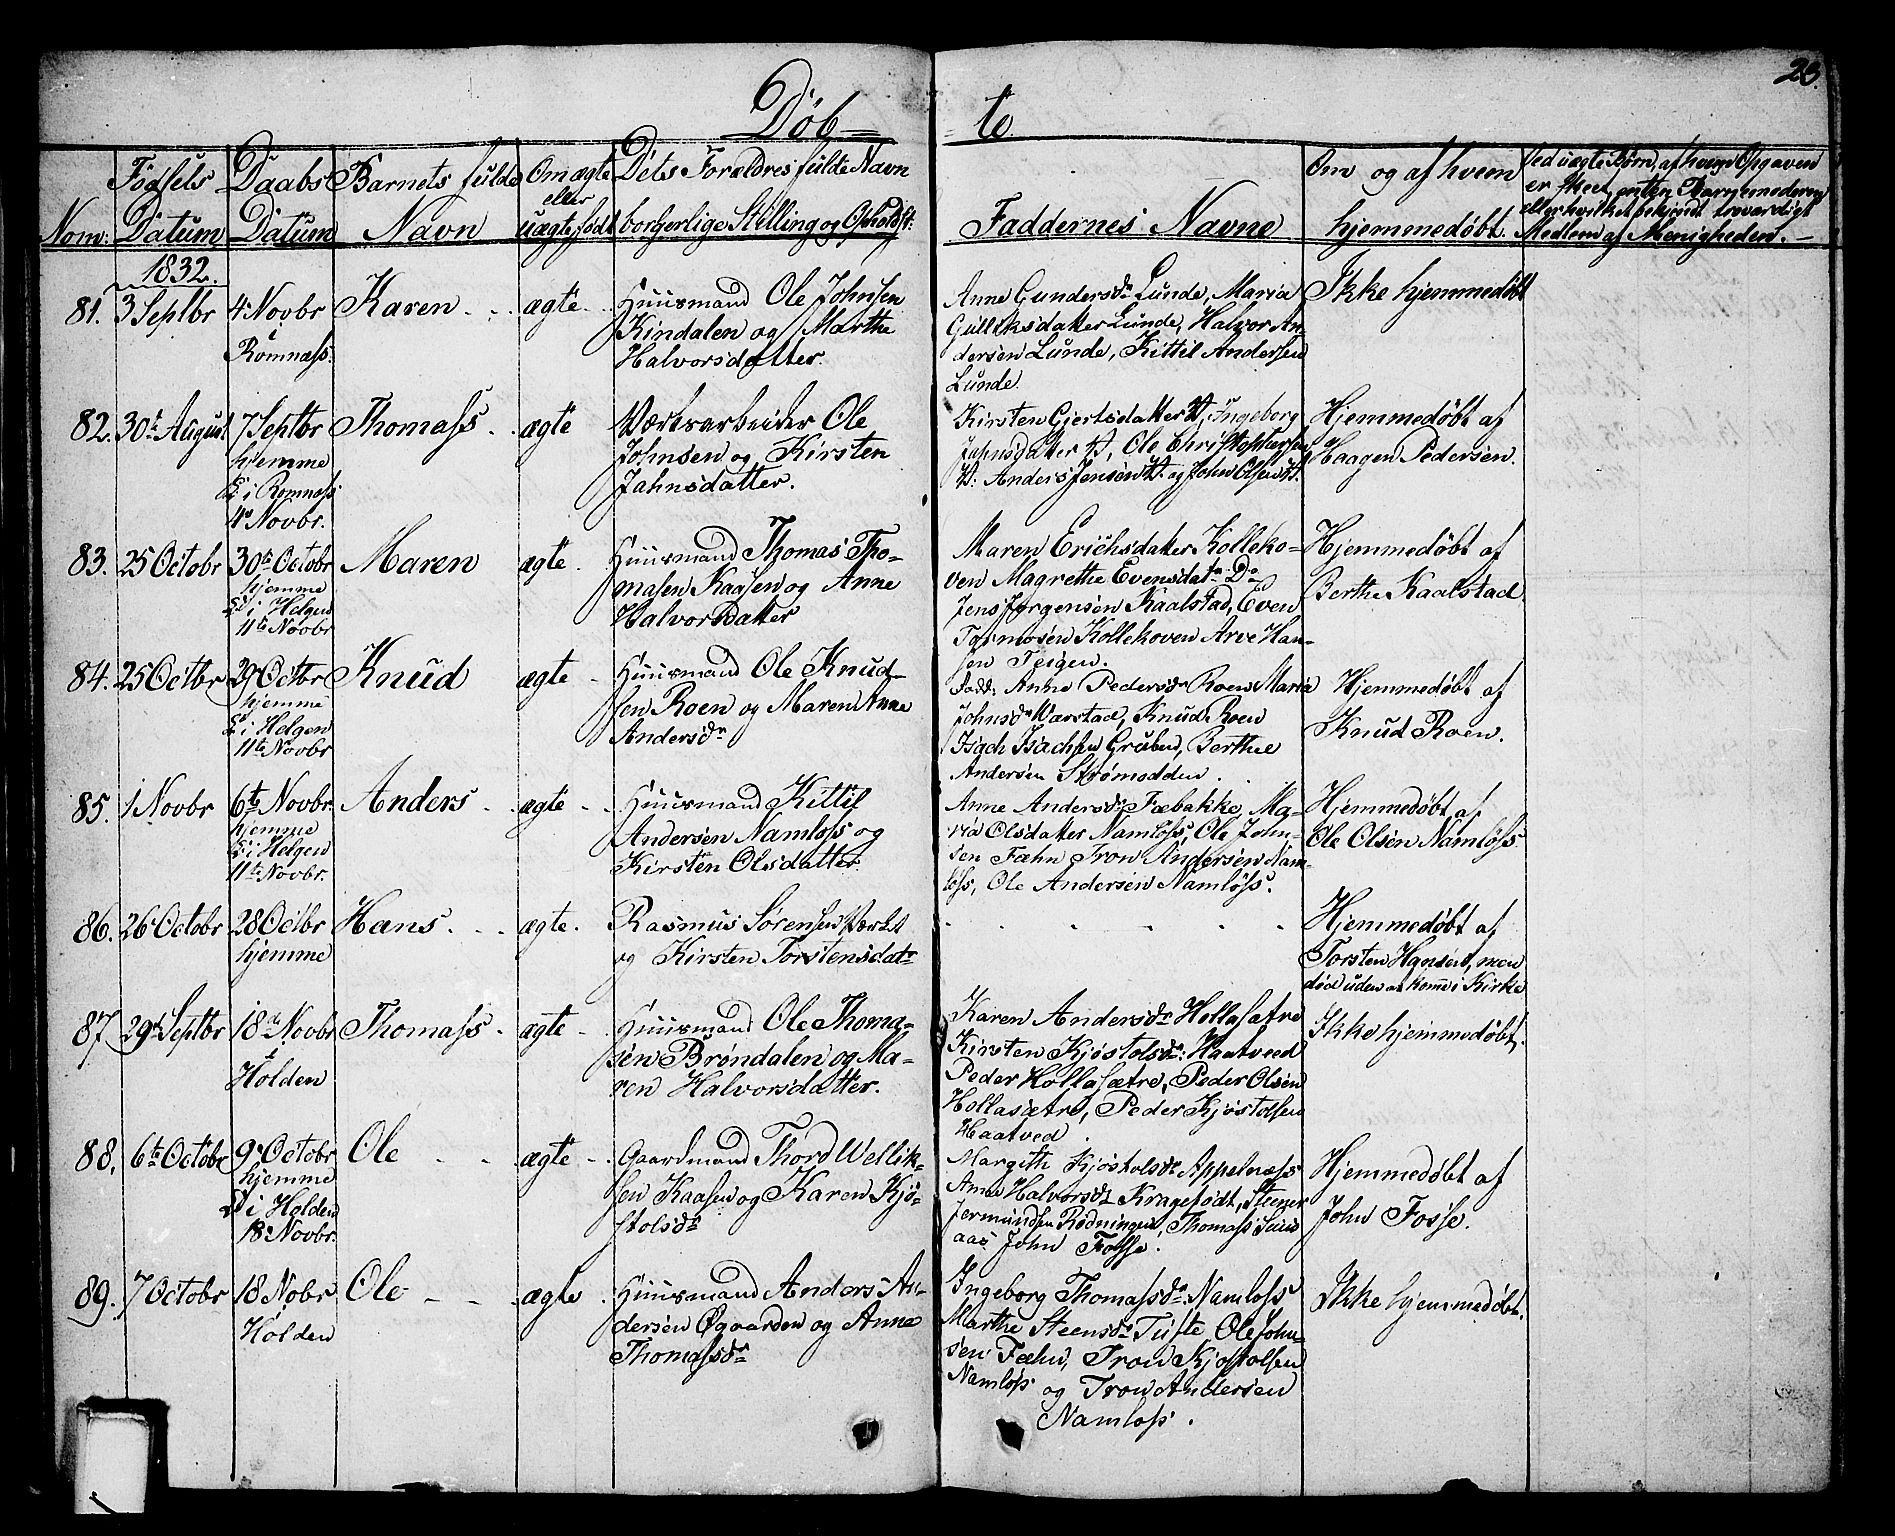 Døb-
te.
28.
Nom:
Fødsels
Datum
Daabs
Datum
Barnets fulde
Navn
Om ægte
eller
uægte født
Dets Forældres fulde Navn
borgerlige Stilling og Opholdst:
Faddernes Navne
Om og af hvem
hjemmedøbt.
Ved uægte Børn, af hvem Opgaven
er skeet, enten Barnemoderen
eller hvilket bekjendt troværdigt
Medlem af Menigheden. -
1832.
81.
3 Septbr
4 Novbr
i
Romnæss.
Karen
ægte
Huusmand Ole Johnsen
Kindalen og Marthe
Halvorsdatter.
Anne Gundersdr Lunde, Maria
Gulliksdatter Lunde, Halvor An-
dersen Lunde, Kittil Andersen
Lunde.
Ikke hjemmedøbt
82.
30t August
7 Septbr
hjemme
i Romnæss
4 Novbr.
Thomass
ægte
Værksarbeider Ole
Johnsen og Kirsten
Jahnsdatter.
Kirsten Gjertsdatter V, Ingeborg
Jahnsdatter V, Ole Christophersen
V: Anders Jensen V. og John Olsen V.
Hjemmedøbt af
Haagen Pedersen.
83.
25 Octobr
30te Octobr
hjemme
i Helgen
11te Novbr
Maren
ægte.
Huusmand Thomas Tho-
masen Kaasen og Anne
HalvorsDatter
Maren Erichsdatter Kolleko-
ven Magrethe Evensdatr Do
Jens Jørgensen Kaalstad, Even
Kollekoven Arve Han-
sen Teigen.
Hjemmedøbt af
Berthe Kaalstad.
84.
25 Octbr
29 Octbr
hjemme
i Helgen
11te Novbr
Knud
ægte
Huusmand Ole Knud-
sen Roen og Maren Anne
Andersdr
Fadd: Anne Pedersdr Roen Maria
Johnsdr Værstad, Knud Roen
Isach Isachsen Gruben, Berthe
Andersen Strømodden.
Hjemmedøbt af
Knud Roen.
85.
1 Novbr
6te Novbr.
hjemme
i Helgen
11te Novbr.
Anders
ægte
Huusmand Kittil
Andersen Namløss og
Kirsten Olsdatter
Anne Andersdr Fæbakke, Ma-
ria Olsdatter Namløss, Ole John-
sen Fæhn Tron Andersen Nam-
løss, Ole Andersen Namløss.
Hjemmedøbt af
Ole Olsen Namløss
86.
26 Octobr
28 Octbr
hjemme
Hans
ægte.
Rasmus Sørensen Værket
og Kirsten Torstensdatr
Hjemmedøbt af
Torsten Hansen, men
død uden at komme i Kirke
87.
29 Septbr
18d Novbr
Holden
Thomass
ægte
Huusmand Ole Thoma-
sen Brøndalen og Ma-
ren Halvorsdatter.
Karen Andersdr Hollasætre
Kirsten Kjøstolsdr: Haatveed
Peder Hollasætre, Peder Olsen
Hollasætre, Peder Kjøstolsen
Haatved.
Ikke hjemmedøbt.
88.
6te Octobr
9 Octobr
hjemme
i Holden
18 Novbr.
Ole
ægte
Gaardmand Thord Wellik-
sen Kaasen og Karen Kjø-
stolsdr
Margith Kjøstolsdr Appelnæss
Anne Halvorsdr Kragefødt, Steener
Jermundsen Rødningen, Thomass
aas John Fosse.
Hjemmedøbt af
John Fosse.
89.
7 Octobr
18 Nobr
Holden
Ole
ægte
Huusmand Anders An-
dersen Øgaarden og Anne
Thomassdr
Ingeborg Thomassdr: Namløss
Marthe Steensdr Tufte, Ole John-
sen Fæhn, Tron Kjøstolsen
Namløss og Tron Andersen
Namløss.
Ikke hjemmedøbt.